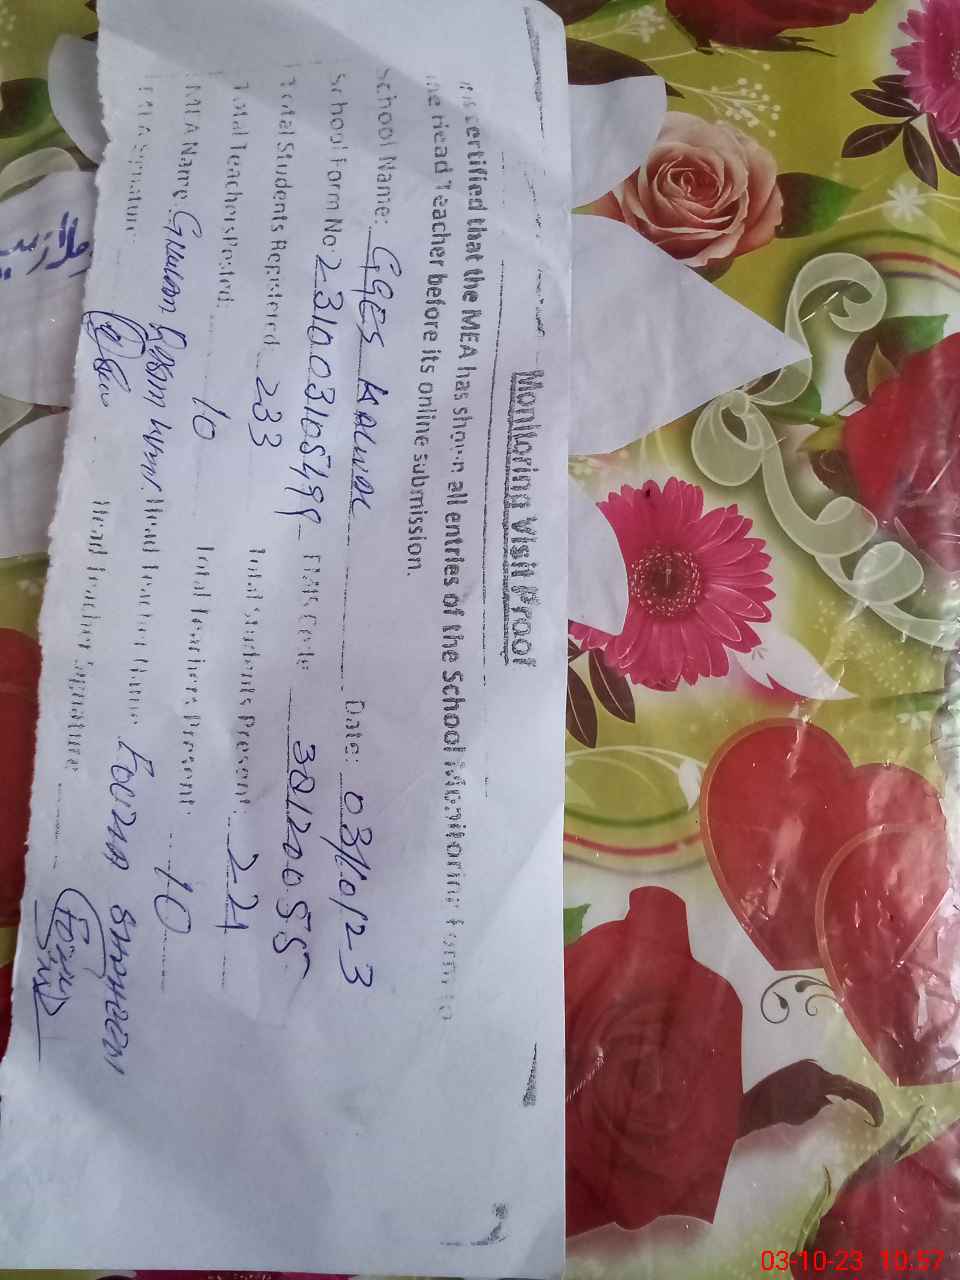 Monitoring Visit Proof
is certified that the MEA has shown all entries of the School Monitoring Form to
the Head Teacher before its online submission.
School Name: GGES KALWAL Date: 03/10/23
School Form No: 23100310549 EMIS Code 38120055
Total Students Registered: 233 Total Students Present: 221
Total Teachers Posted: 10 Total Teachers Present: 10
MEA Name: Head Teacher Name
MEA Signature: Head Teacher Signature
03-10-23 10:57